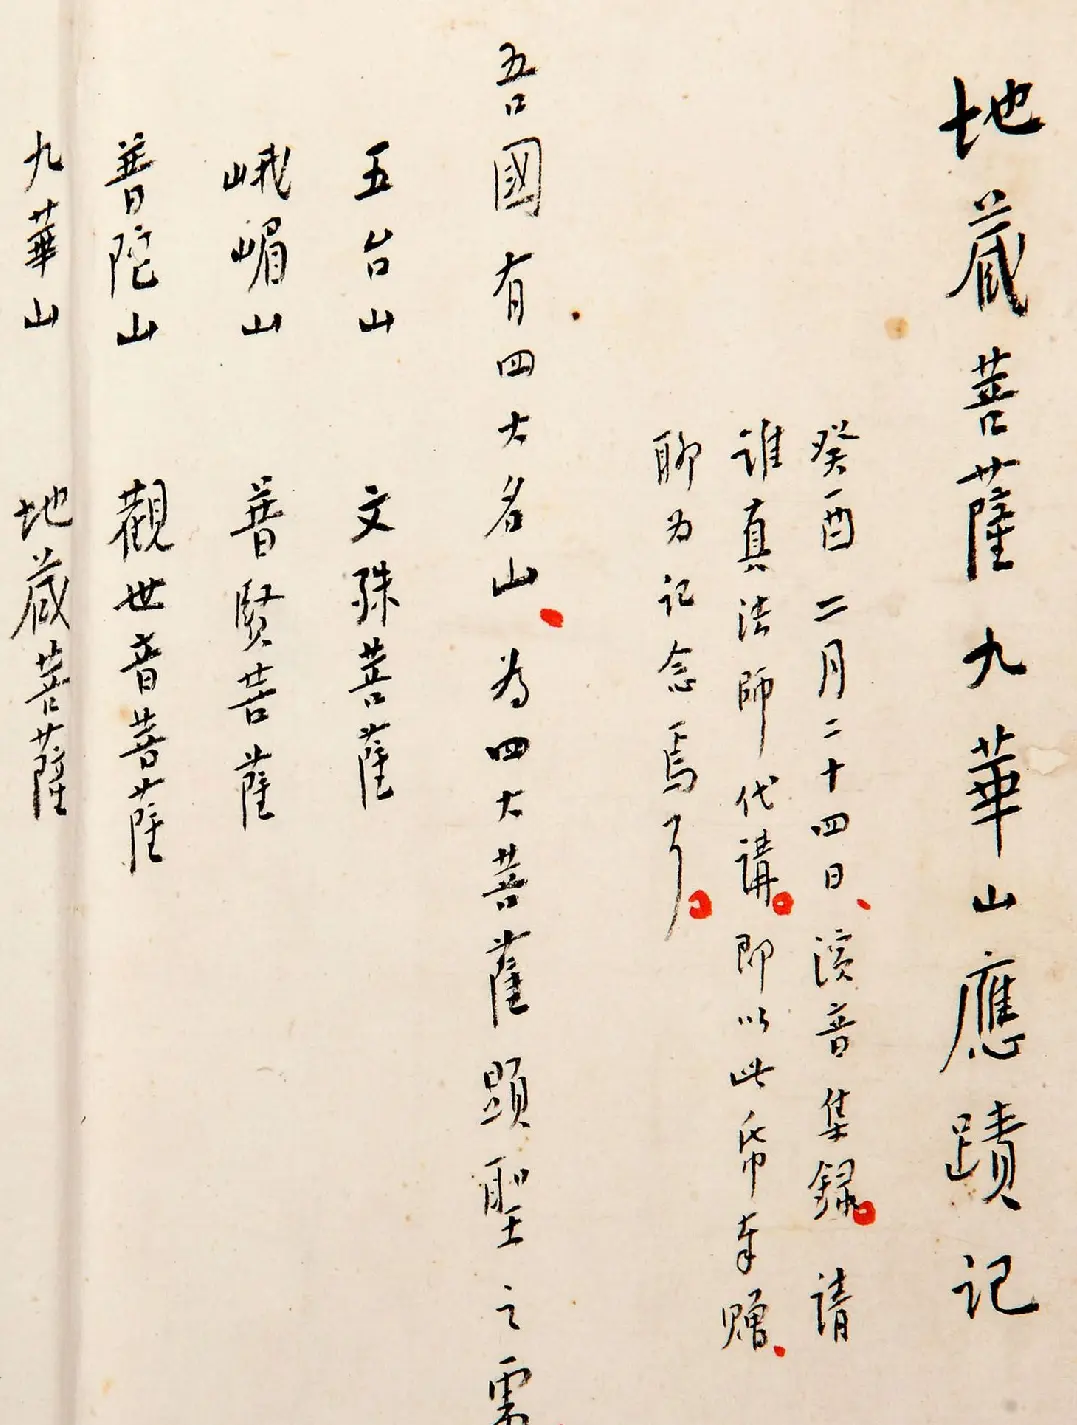 地藏菩薩九華山應蹟記
癸酉二月二十四日、演音集録。請
誰真法師代講。即以此帋奉贈、
聊为記念焉
吾國有四大名山、為四大菩薩顕聖之
五台山 文殊菩薩
峨嵋山 普賢菩薩
普陀山 觀世音菩薩
九華山 地藏菩薩